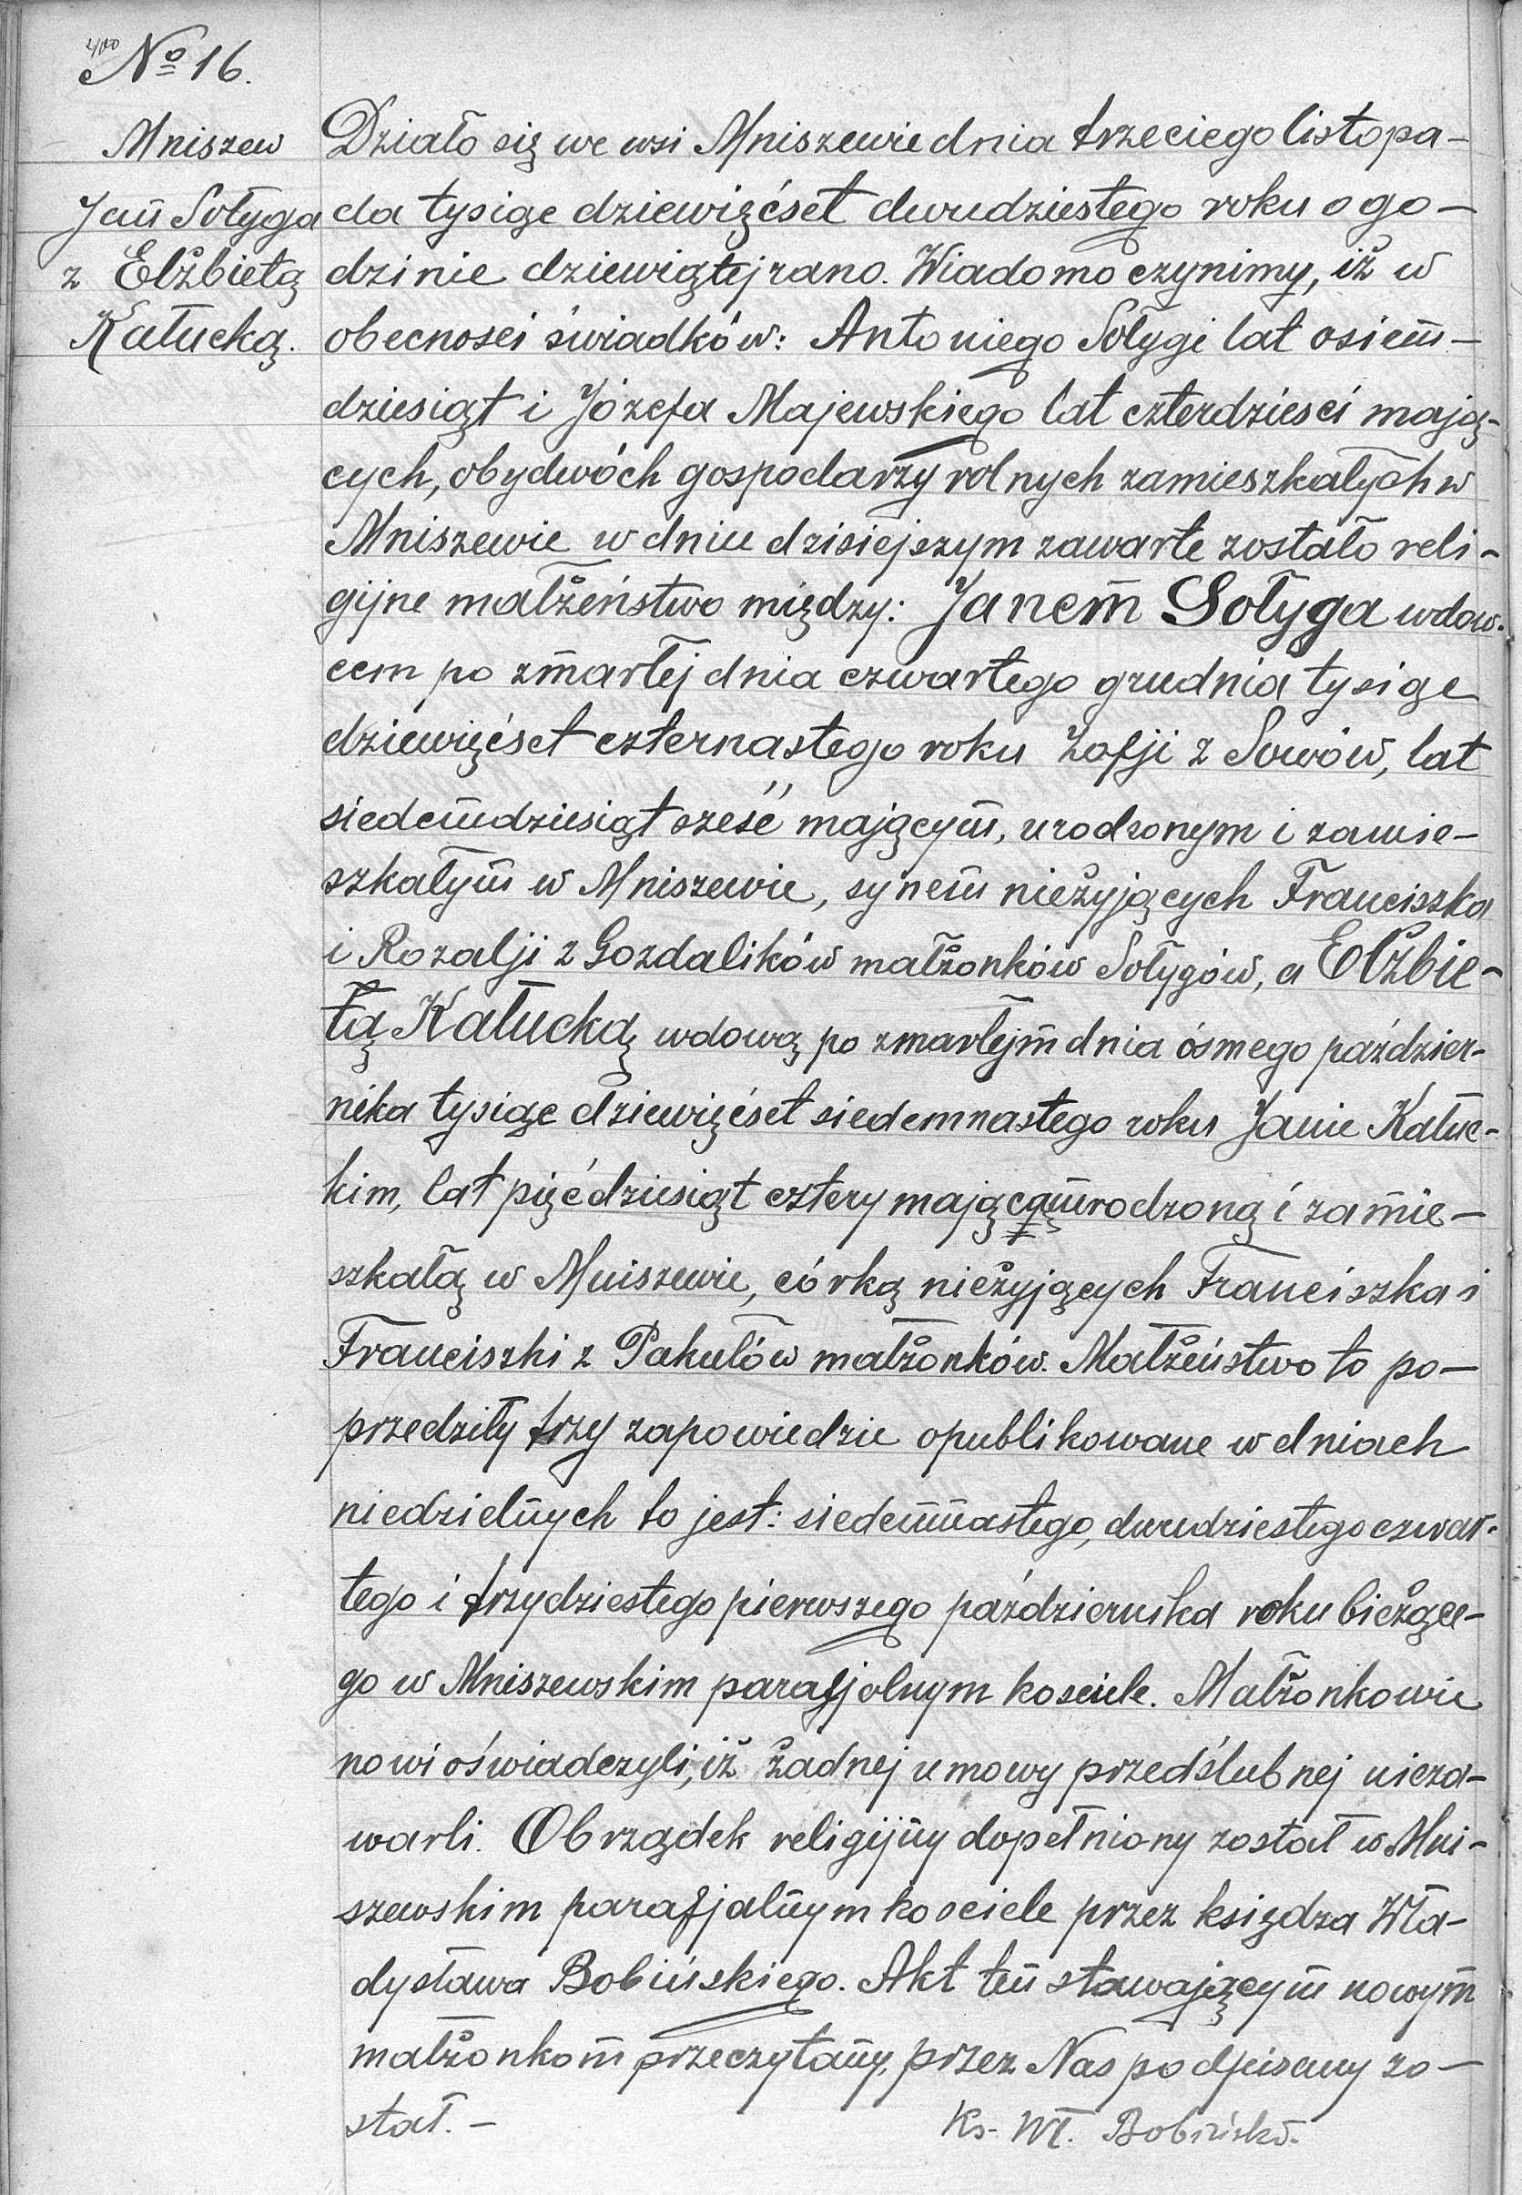 № 16.
Mniszew
Jan Sołyga
z Elżbietą
Kałucką.
Działo się we wsi Mniszewie dnia trzeciego listopa-
da tysiąc dziewięćset dwudziestego roku o go-
dzinie dziewiątej rano. Wiadomo czynimy, iż w
obecnosci świadków: Antoniego Sołygi lat osiem-
dziesiąt i Józefa Majewskiego lat czterdziesci mają-
cych, obydwóch gospodarzy rolnych zamieszkałych w
Mniszewie w dniu dzisiejszym zawarte zostało reli-
gijne małżeństwo między: Janem Sołyga wdow-
cem po zmarłej dnia czwartego grudnia tysiąc
dziewięćset czternastego roku Zofji z Sowów, lat
siedemdziesiąt sześć mającym, urodzonym i zamie-
szkałym w Mniszewie, synem nieżyjących Franciszka
i Rozalji z Gozdalików małżonków Sołygów, a Elżbie-
tą Kałucką wdową po zmarłejm dnia ósmego paździer-
nika tysiąc dziewięćset siedemnastego roku Janie Kałuc-
kim, lat pięćdziesiąt cztery mającą urodzoną i zamie-
szkałą w Mniszewie, córką nieżyjących Franciszka i
Franciszki z Pakułów małżonków. Małżeństwo to po-
przedziły trzy zapowiedzie opublikowane w dniach
niedzielnych to jest: siedemnastego, dwudziestego czwar-
tego i trzydziestego pierwszego października roku bieżące-
go w Mniszewskim parafjalnym kosciele. Małżonkowie
nowi oświadczyli, iż żadnej umowy przedślubnej nieza-
warli. Obrządek religijny dopełniony został w Mni-
szewskim parafjalnym kosciele przez księdza Wła-
dysława Bobińskiego. Akt ten stawającym nowym
małżonkom przeczytany, przez Nas podpisany zo-
stał. -
Ks. Wł. Bobiński.